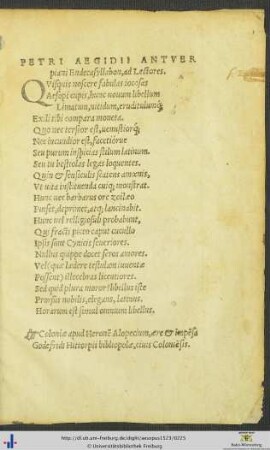 PETRI AEGIDII ANTVER
piani Endecasyllabon, ad Lectores.
QVisquis noscere fabulas iocosas
Aesopi cupis, hunc nouum libellum
Limatum, nitidum, eruditulumq́;
Exili tibi compara moneta.
Quo nec tersior est, uenustiorq́;
Nec iucundior est, facetiórue
Seu purum inspicias stilum latinum.
Seu tu bestiolas legas loquentes.
Quin & sensiculis scatens amœnis,
Vt uita instituenda cuiq; monstrat.
Hunc nec barbarus ore
Funset, deprauet, atq; lancinabit.
Hunc nec relligiosuli probabunt,
Qui fracti picea caput cuculla
Ipsis sunt Cynicis seueriores.
Nullus quippe docet feros amores.
Vel quæ lædere
Possent illecebras licentiores.
Sed quid plura moror? libellus iste
Prorsus nobilis, elegans, latinus.
Horarum est simul omnium libellus.
Coloniæ apud Heronē Alopecium, ære & impēsa
Godefridi Hittorpii bibliopolæ, ciuis Coloniēsis.
http://dl.ub.uni-freiburg.de/diglit/aesopus1523/0225
© Universitätsbibliothek Freiburg